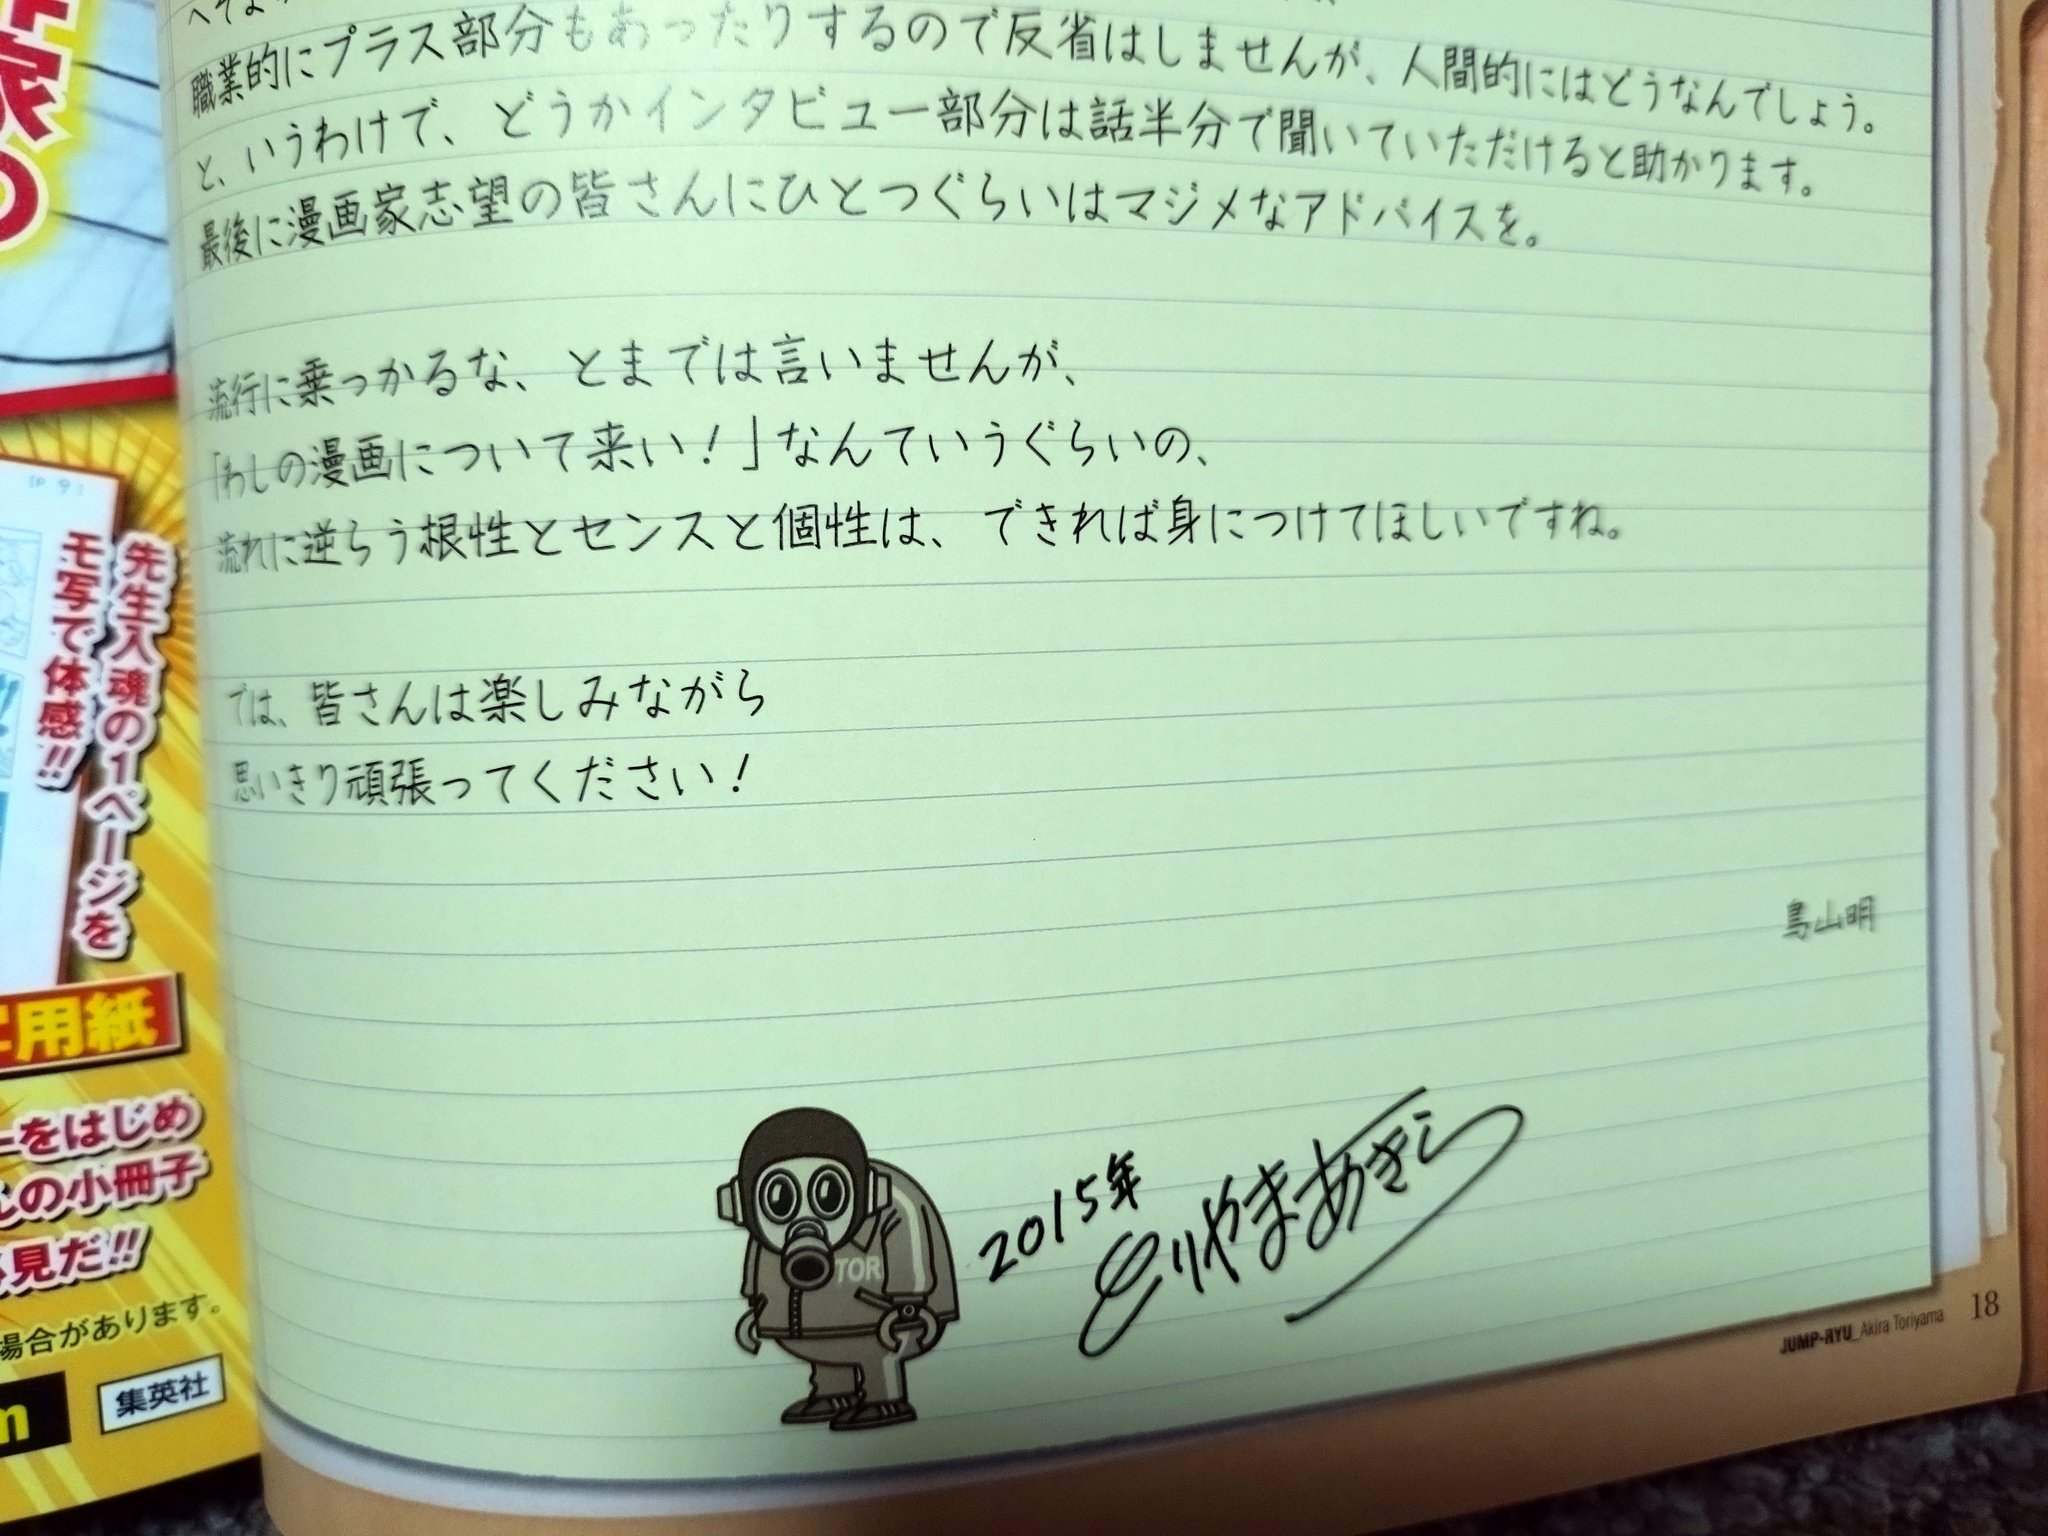 職業的にプラス部分もあったりするので反省はしませんが、人間的にはどうなんでしょう。
と、いうわけで、どうかインタビュー部分は話半分で聞いていただけると助かります。
最後に漫画家志望の皆さんにひとつぐらいはマジメなアドバイスを。
流行に乗っかるな、とまでは言いませんが、
「わしの漫画について来い!」なんていうぐらいの、
流れに逆らう根性とセンスと個性は、できれば身につけてほしいですね。
では、皆さんは楽しみながら
思いきり頑張ってください!
鳥山明
TOR
2015年
とりやまあきら
JUMP-RYU_Akira Toriyama 18
家
の
先生入魂の1ページを
モ写で体感!!
用紙
ーをはじめ
の小冊子
見だ!!
場合があります。
集英社